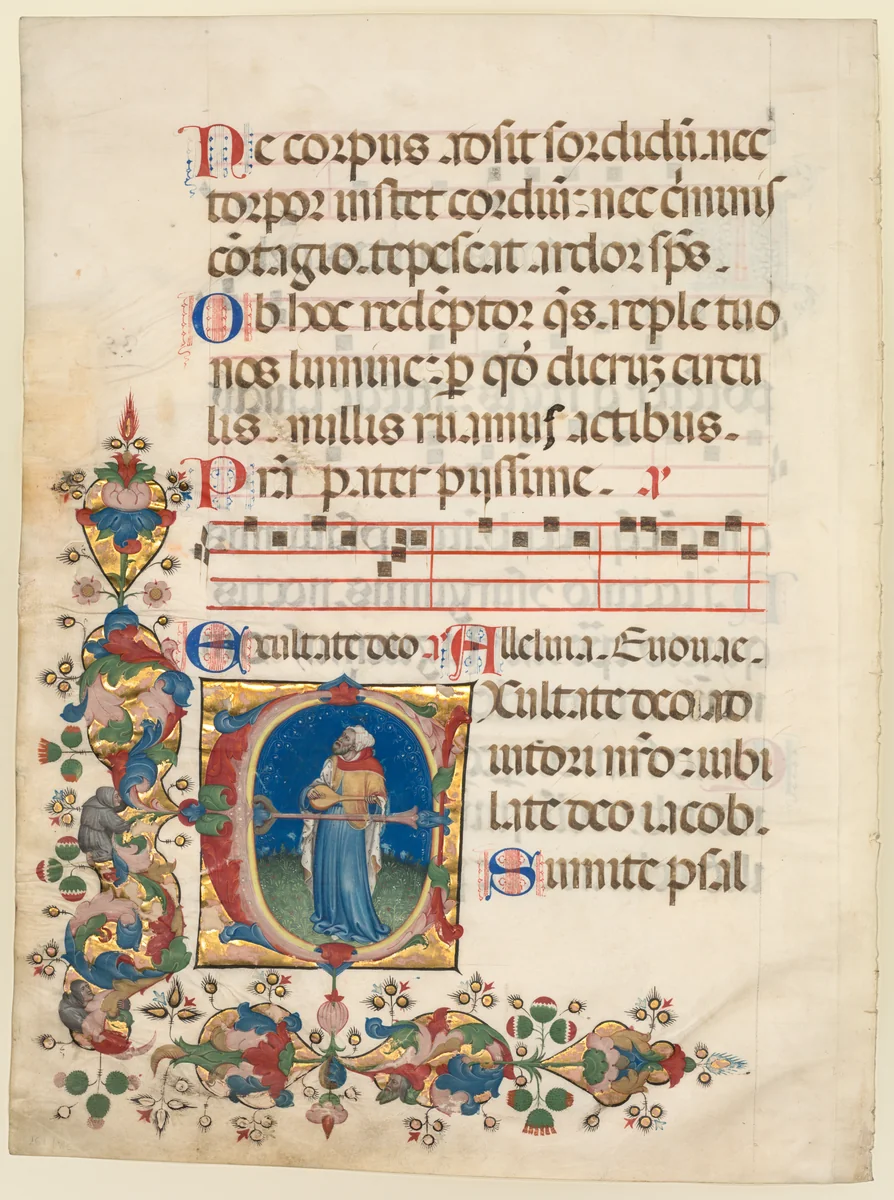 Ne corpus adsit sordidũ. nec
torpor instet cordiũ: nec c̃iminis
cõtagio. tepescat ardor sp̃s.
Ob hoc redẽptor q̃s. reple tuo
nos lumine: ꝑ qđ dieruꝫ circu
lis. nullis ruamus actibus.
Pr̃a pater pijssime. a
Exultate deo a Alleluia. Euouae.
EXultate deo ad
iutori nr̃o: iubi
late deo iacob.
Sumite psal